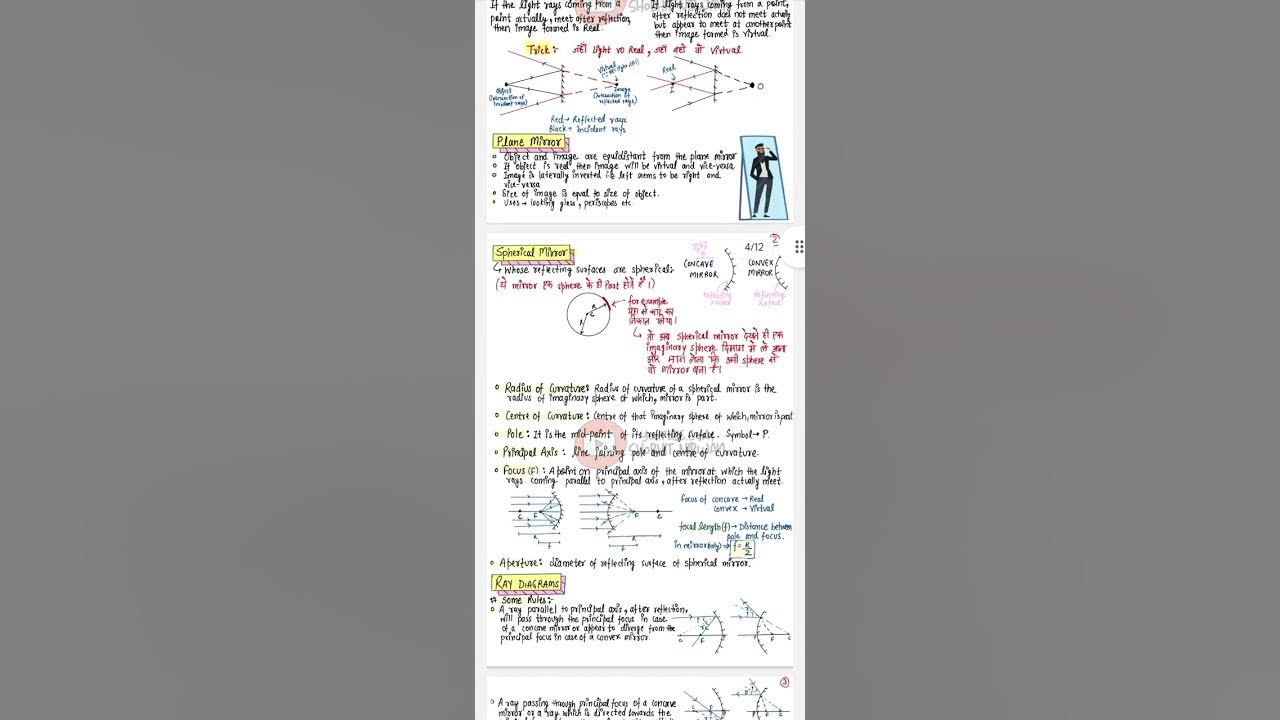 If the light rays coming from a
point actually, meet after reflection,
then image formed is Real.
If light rays coming from a point,
after reflection does not meet actually
but appear to meet at another point
then image formed is virtual.
Trick:- जहाँ Light वो Real, जहाँ नहीं वो Virtual.
Object
(Intersection of
incident rays)
Virtual
Image
(Intersection of
reflected rays)
Real
I
O
Red → Reflected rays
Black → Incident rays
Plane Mirror
Object and image are equidistant from the plane mirror
If object is real, then image will be virtual and vice-versa
Image is laterally inverted i.e left seems to be right and
vice-versa
Size of image is equal to size of object.
Uses → looking glass, periscopes etc.
2
4/12
Spherical Mirror
↳ Whose reflecting surfaces are spherical:
(ये mirror एक sphere के ही Part होते हैं।)
CONCAVE
MIRROR
Reflecting
surface
CONVEX
MIRROR
Reflecting
surface
R
C
for example
यहाँ से काट कर
निकाल लिया।
↳ तो अब spherical mirror देखते ही एक
imaginary sphere दिमाग में ले आना
और मान लेना कि उसी sphere से
वो Mirror बना है।
Radius of Curvature: Radius of curvature of a spherical mirror is the
radius of imaginary sphere of which, mirror is part.
Centre of Curvature: Centre of that imaginary sphere of which, mirror is part
Pole: It is the mid-point of its reflecting surface. Symbol → P.
Principal Axis: line joining pole and centre of curvature.
Focus (F): A point on principal axis of the mirror at which the light
rays coming parallel to principal axis, after reflection actually meet.
C F
R
f
F C
R
f
focus of concave → Real
convex → Virtual
focal length (f) → Distance between
pole and focus.
in mirror (only) ⇒ f = R/2
Aperture: diameter of reflecting surface of spherical mirror.
RAY DIAGRAMS
# Some Rules:-
A ray parallel to principal axis, after reflection,
will pass through the principal focus in case
of a concave mirror or appear to diverge from the
principal focus in case of a convex mirror.
C F
P F C
3
A ray passing through principal focus of a concave
mirror or a ray which is directed towards the